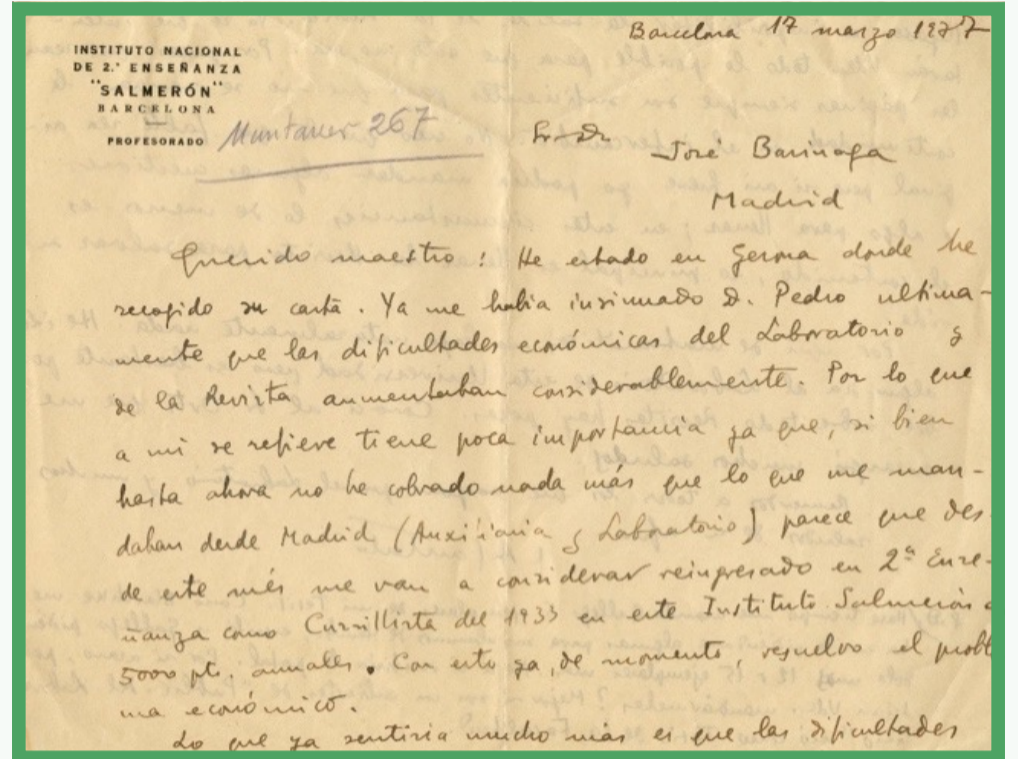 INSTITUTO NACIONAL
DE 2.ª ENSEÑANZA
"SALMERÓN"
BARCELONA
PROFESORADO
Muntaner 267
Barcelona 17 marzo 1937
Sr. D.
José Barinaga
Madrid
Querido maestro: He estado en Gerona donde he
recogido su carta. Ya me habia insinuado D. Pedro ultima-
mente que las dificultades económicas del Laboratorio y
de la Revista aumentaban considerablemente. Por lo que
a mi se refiere tiene poca importancia ya que, si bien
hasta ahora no he cobrado nada más que lo que me man-
daban desde Madrid (Auxiliaria y Laboratorio) parece que des-
de este més me van a considerar reingresado en 2ª Ense-
ñanza como Cursillista del 1933 en este Instituto Salmerón a
5000 pts. anuales. Con esto ya, de momento, resuelvo el proble
ma económico.
Lo que ya sentiria mucho más es que las dificultades